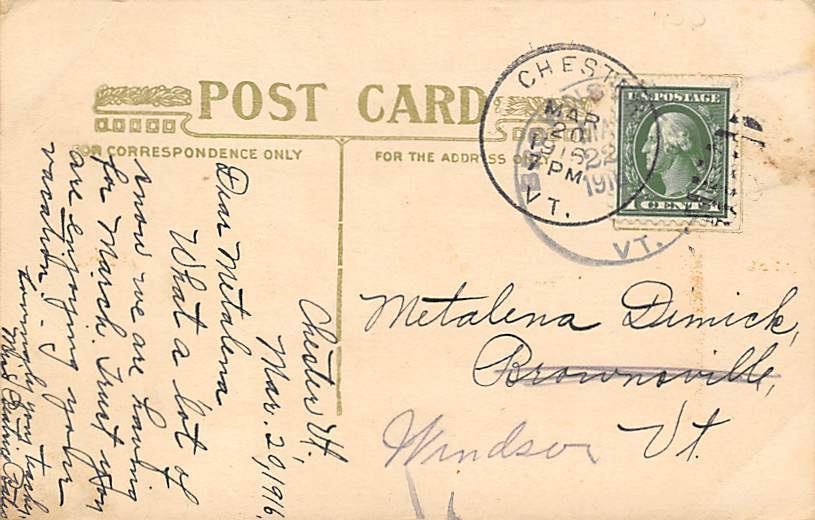 POST CARD
FOR CORRESPONDENCE ONLY
FOR THE ADDRESS ONLY
CHESTER
MAR
20
1916
7 PM
VT.
22
VT.
U.S. POSTAGE
1 CENT
Chester Vt.
Mar. 20, 1916.
Dear Metalena
What a lot of
snow we are having
for March. Trust you
are enjoying your
vacation. -
Lovingly your teacher,
Miss Bates
Metalena Dimick,
Brownsville,
Windsor Vt.